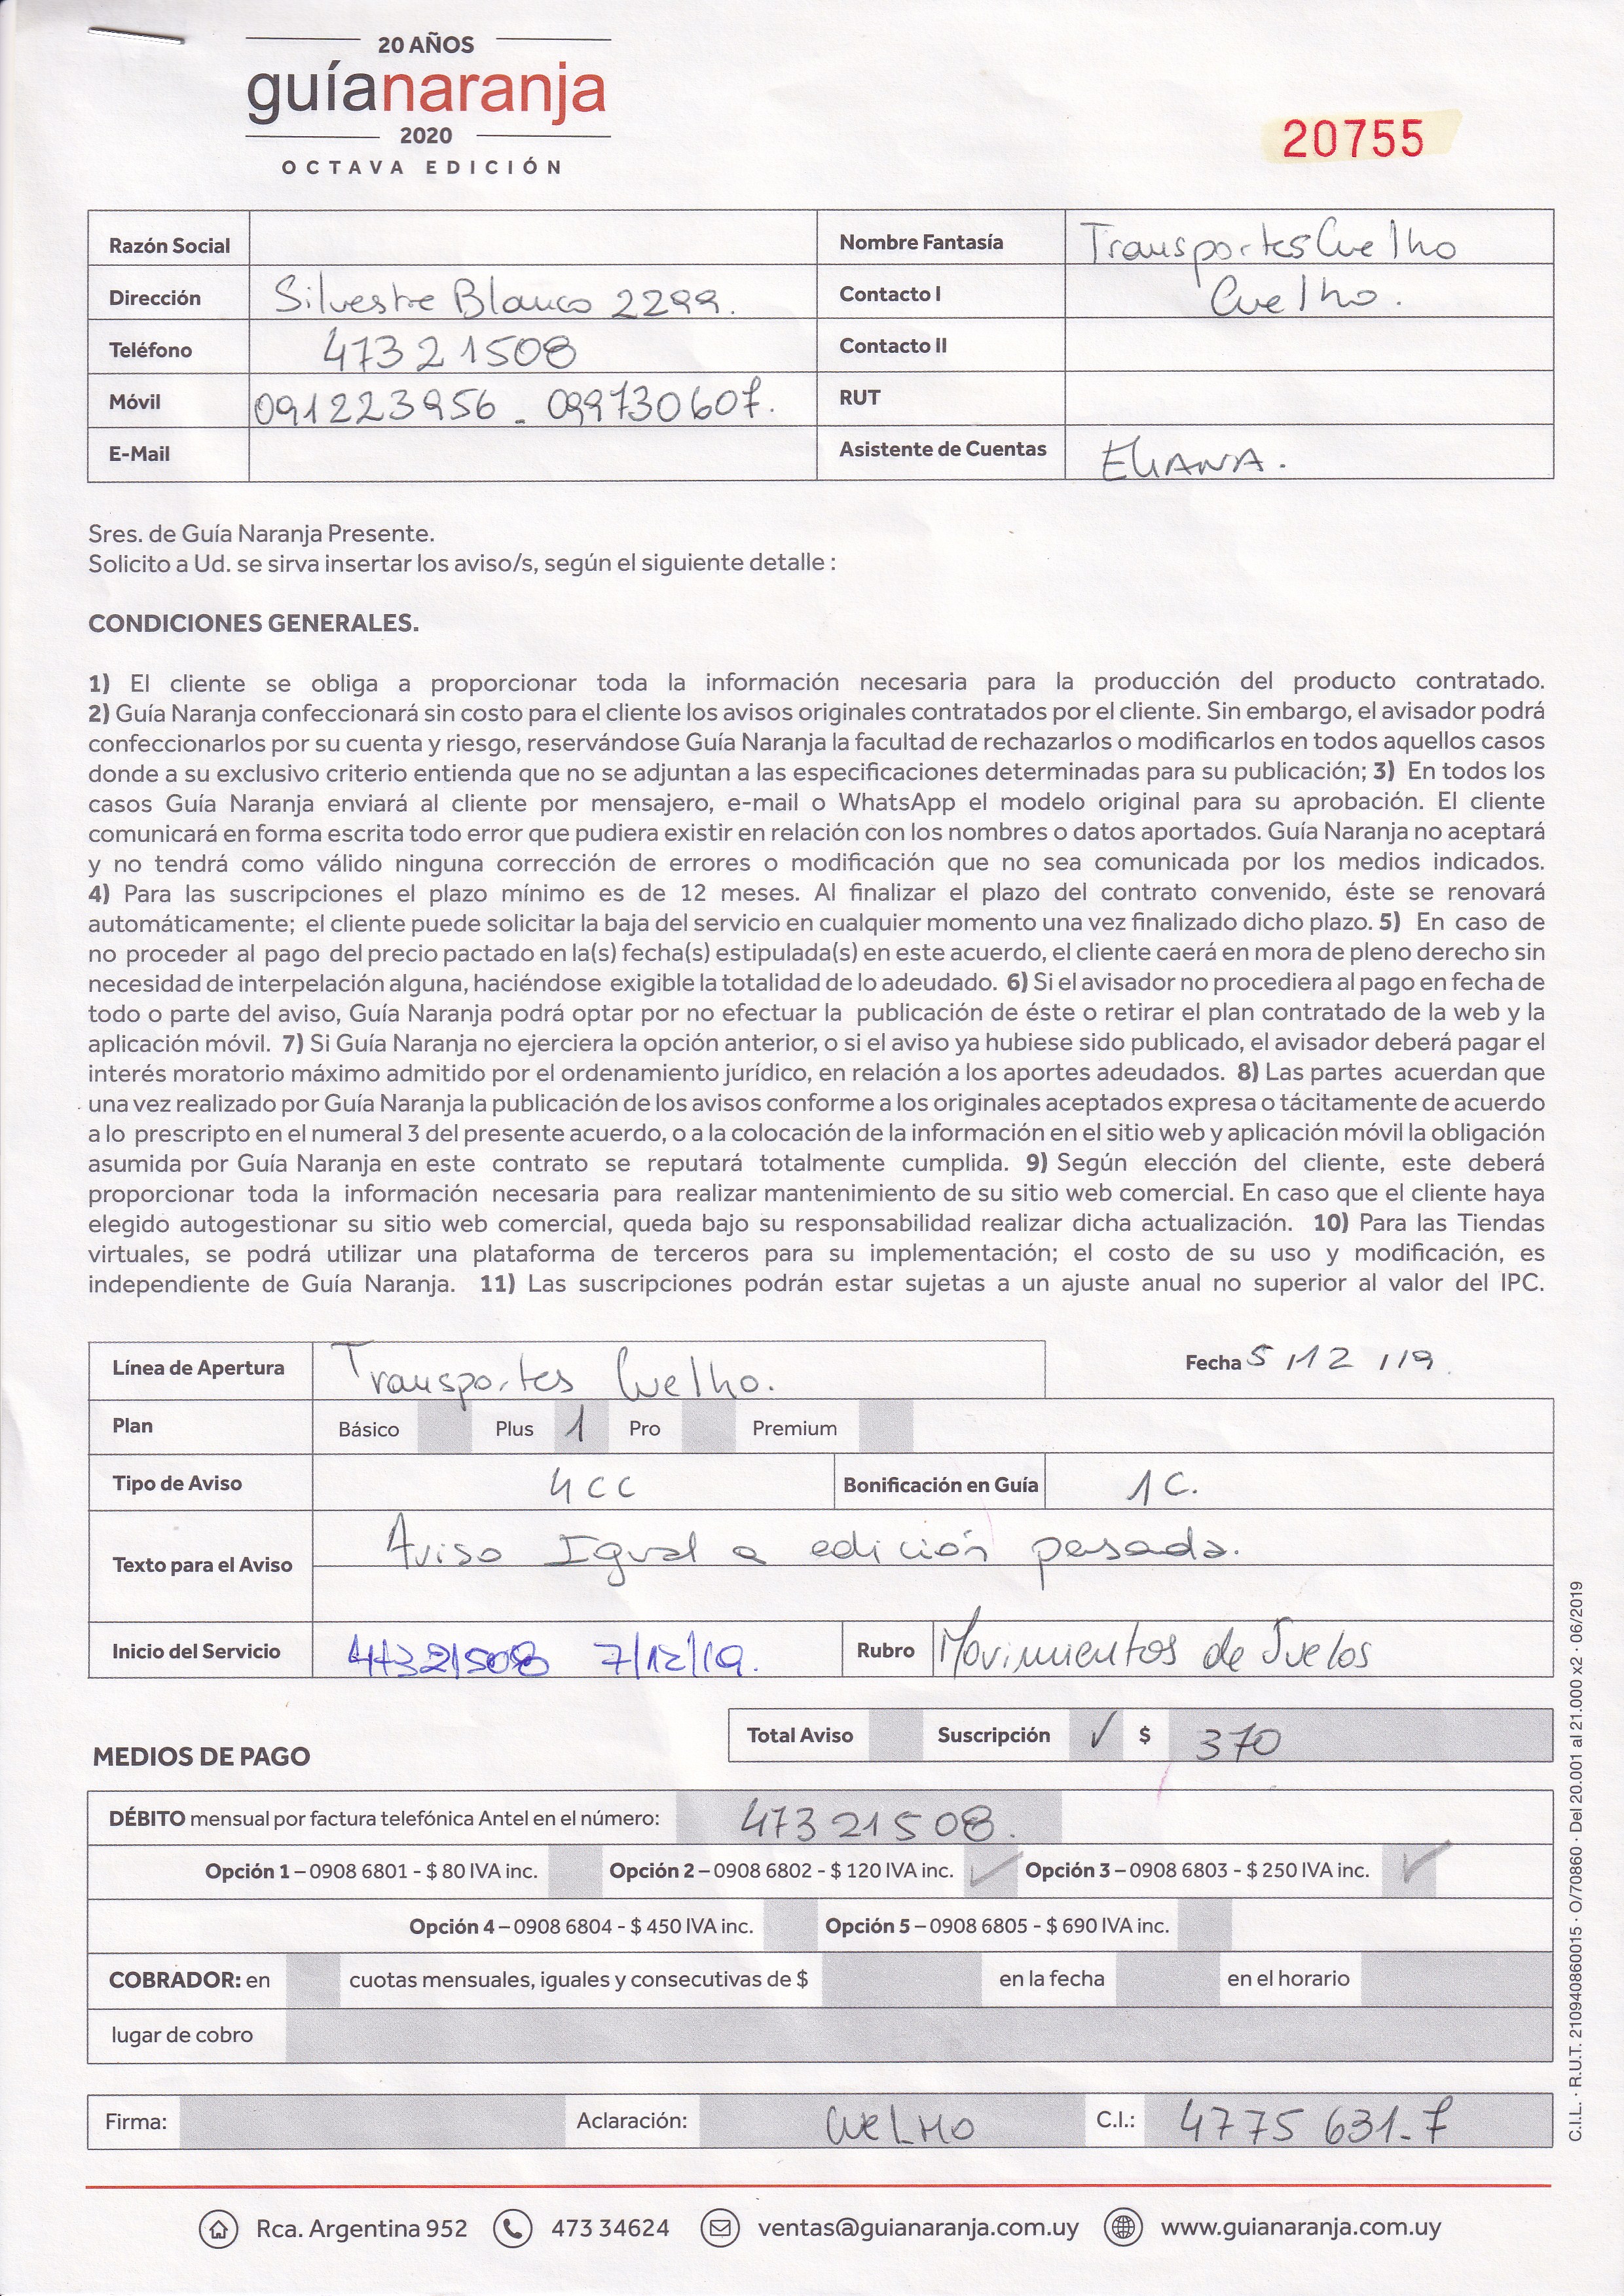 20 AÑOS
guíanaranja
2020
OCTAVA EDICIÓN
20755
Razón Social
Nombre Fantasía Transportes Cuelho
Dirección Silvestre Blanco 2299.
Contacto I Cuelho.
Teléfono 47321508
Contacto II
Móvil 091223956 - 099730607.
RUT
E-Mail
Asistente de Cuentas ELIANA.
Sres. de Guía Naranja Presente.
Solicito a Ud. se sirva insertar los aviso/s, según el siguiente detalle :
CONDICIONES GENERALES.
1) El cliente se obliga a proporcionar toda la información necesaria para la producción del producto contratado.
2) Guía Naranja confeccionará sin costo para el cliente los avisos originales contratados por el cliente. Sin embargo, el avisador podrá
confeccionarlos por su cuenta y riesgo, reservándose Guía Naranja la facultad de rechazarlos o modificarlos en todos aquellos casos
donde a su exclusivo criterio entienda que no se adjuntan a las especificaciones determinadas para su publicación; 3) En todos los
casos Guía Naranja enviará al cliente por mensajero, e-mail o WhatsApp el modelo original para su aprobación. El cliente
comunicará en forma escrita todo error que pudiera existir en relación con los nombres o datos aportados. Guía Naranja no aceptará
y no tendrá como válido ninguna corrección de errores o modificación que no sea comunicada por los medios indicados.
4) Para las suscripciones el plazo mínimo es de 12 meses. Al finalizar el plazo del contrato convenido, éste se renovará
automáticamente; el cliente puede solicitar la baja del servicio en cualquier momento una vez finalizado dicho plazo. 5) En caso de
no proceder al pago del precio pactado en la(s) fecha(s) estipulada(s) en este acuerdo, el cliente caerá en mora de pleno derecho sin
necesidad de interpelación alguna, haciéndose exigible la totalidad de lo adeudado. 6) Si el avisador no procediera al pago en fecha de
todo o parte del aviso, Guía Naranja podrá optar por no efectuar la publicación de éste o retirar el plan contratado de la web y la
aplicación móvil. 7) Si Guía Naranja no ejerciera la opción anterior, o si el aviso ya hubiese sido publicado, el avisador deberá pagar el
interés moratorio máximo admitido por el ordenamiento jurídico, en relación a los aportes adeudados. 8) Las partes acuerdan que
una vez realizado por Guía Naranja la publicación de los avisos conforme a los originales aceptados expresa o tácitamente de acuerdo
a lo prescripto en el numeral 3 del presente acuerdo, o a la colocación de la información en el sitio web y aplicación móvil la obligación
asumida por Guía Naranja en este contrato se reputará totalmente cumplida. 9) Según elección del cliente, este deberá
proporcionar toda la información necesaria para realizar mantenimiento de su sitio web comercial. En caso que el cliente haya
elegido autogestionar su sitio web comercial, queda bajo su responsabilidad realizar dicha actualización. 10) Para las Tiendas
virtuales, se podrá utilizar una plataforma de terceros para su implementación; el costo de su uso y modificación, es
independiente de Guía Naranja. 11) Las suscripciones podrán estar sujetas a un ajuste anual no superior al valor del IPC.
Línea de Apertura Transportes Cuelho.
Fecha 5/12/19.
Plan Básico Plus 1 Pro Premium
Tipo de Aviso 4CC Bonificación en Guía 1C.
Texto para el Aviso Aviso Igual a edición pasada.
Inicio del Servicio 47321508 7/12/19. Rubro Movimientos de Suelos
Total Aviso Suscripción ✓ $ 370
MEDIOS DE PAGO
DÉBITO mensual por factura telefónica Antel en el número: 47321508.
Opción 1 – 0908 6801 - $ 80 IVA inc. Opción 2 – 0908 6802 - $ 120 IVA inc. ✓ Opción 3 – 0908 6803 - $ 250 IVA inc. ✓
Opción 4 – 0908 6804 - $ 450 IVA inc. Opción 5 – 0908 6805 - $ 690 IVA inc.
COBRADOR: en cuotas mensuales, iguales y consecutivas de $ en la fecha en el horario
lugar de cobro
Firma: Aclaración: CUELHO C.I.: 4775631-7
Rca. Argentina 952 473 34624 ventas@guianaranja.com.uy www.guianaranja.com.uy
C.I.L. · R.U.T. 210940860015 · O/70860 · Del 20.001 al 21.000 x2 · 06/2019